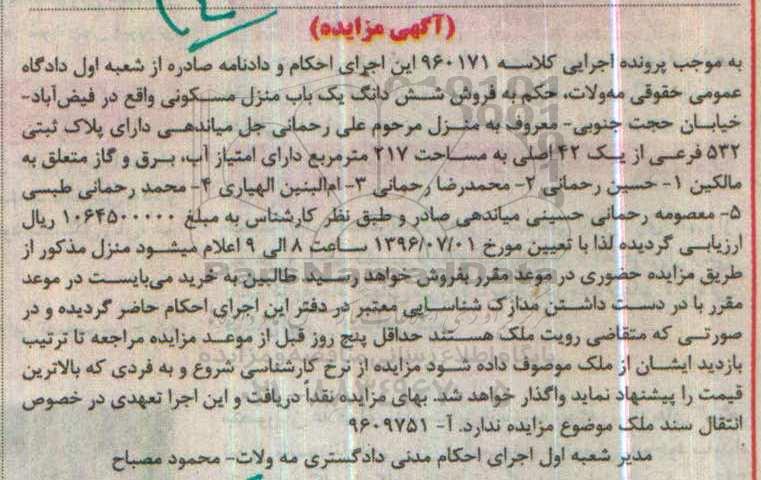 (آگهی مزایده)
به موجب پرونده اجرایی کلاسه ۹۶۰۱۷۱ این اجرای احکام و دادنامه صادره از شعبه اول دادگاه
عمومی حقوقی مه‌ولات، حکم به فروش شش دانگ یک باب منزل مسکونی واقع در فیض‌آباد-
خیابان حجت جنوبی- معروف به منزل مرحوم علی رحمانی جل میاندهی دارای پلاک ثبتی
۵۳۲ فرعی از یک ۴۲ اصلی به مساحت ۲۱۷ مترمربع دارای امتیاز آب، برق و گاز متعلق به
مالکین ۱- حسین رحمانی ۲- محمدرضا رحمانی ۳- ام‌البنین الهیاری ۴- محمد رحمانی طبسی
۵- معصومه رحمانی حسینی میاندهی صادر و طبق نظر کارشناس به مبلغ ۱۰۶۴۵۰۰۰۰۰ ریال
ارزیابی گردیده لذا با تعیین مورخ ۱۳۹۶/۰۷/۰۱ ساعت ۸ الی ۹ اعلام میشود منزل مذکور از
طریق مزایده حضوری در موعد مقرر بفروش خواهد رسید طالبین به خرید می‌بایست در موعد
مقرر با در دست داشتن مدارک شناسایی معتبر در دفتر این اجرای احکام حاضر گردیده و در
صورتی که متقاضی رویت ملک هستند حداقل پنج روز قبل از موعد مزایده مراجعه تا ترتیب
بازدید ایشان از ملک موصوف داده شود مزایده از نرخ کارشناسی شروع و به فردی که بالاترین
قیمت را پیشنهاد نماید واگذار خواهد شد. بهای مزایده نقداً دریافت و این اجرا تعهدی در خصوص
انتقال سند ملک موضوع مزایده ندارد. آ- ۹۶۰۹۷۵۱
مدیر شعبه اول اجرای احکام مدنی دادگستری مه ولات- محمود مصباح